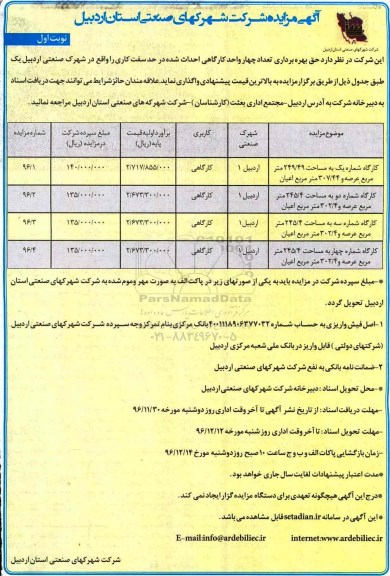 آگهی مزایده شرکت شهرکهای صنعتی استان اردبیل
نوبت اول
این شرکت در نظر دارد حق بهره برداری تعداد چهار واحد کارگاهی احداث شده در حد سفت کاری را واقع در شهرک صنعتی اردبیل یک
طبق جدول ذیل از طریق برگزار مزایده به بالاترین قیمت پیشنهادی واگذاری نماید. علاقه مندان حائز شرایط می توانند جهت دریافت اسناد
به دبیرخانه شرکت به آدرس اردبیل-مجتمع اداری بعثت (کارشناسان)-شرکت شهرکه های صنعتی استان اردبیل مراجعه نمائید.
موضوع مزایده | شهرک صنعتی | کاربری | برآورد اولیه قیمت پایه (ریال) | مبلغ سپرده شرکت در مزایده (ریال) | شماره مزایده
کارگاه شماره یک به مساحت ۲۴۹/۴۹ متر مربع عرصه و ۳۰۷/۴۴ متر مربع اعیان | اردبیل ۱ | کارگاهی | ۲/۷۱۷/۸۵۵/۰۰۰ | ۱۴۰/۰۰۰/۰۰۰ | ۹۶/۱
کارگاه شماره دو به مساحت ۲۴۵/۴ متر مربع عرصه و ۳۰۲/۴ متر مربع اعیان | اردبیل ۱ | کارگاهی | ۲/۶۷۳/۳۰۰/۰۰۰ | ۱۳۵/۰۰۰/۰۰۰ | ۹۶/۲
کارگاه شماره سه به مساحت ۲۴۵/۴ متر مربع عرصه و ۳۰۲/۴ متر مربع اعیان | اردبیل ۱ | کارگاهی | ۲/۶۷۳/۳۰۰/۰۰۰ | ۱۳۵/۰۰۰/۰۰۰ | ۹۶/۳
کارگاه شماره چهار به مساحت ۲۴۵/۴ متر مربع عرصه و ۳۰۲/۴ متر مربع اعیان | اردبیل ۱ | کارگاهی | ۲/۶۷۳/۳۰۰/۰۰۰ | ۱۳۵/۰۰۰/۰۰۰ | ۹۶/۴
*-مبلغ سپرده شرکت در مزایده باید به یکی از صورتهای زیر در پاکت الف به صورت مهر و موم شده به شرکت شهرکهای صنعتی استان
اردبیل تحویل گردد.
۱-اصل فیش واریزی به حساب شماره ۴۰۰۱۱۱۸۹۰۶۳۷۷۰۳۲ بانک مرکزی بنام تمرکز وجه سپرده شرکت شهرکهای صنعتی اردبیل
(شرکتهای دولتی) قابل واریز در بانک ملی شعبه مرکزی اردبیل
۲-ضمانت نامه بانکی به نفع شرکت شهرکهای صنعتی اردبیل
*-محل تحویل اسناد: دبیرخانه شرکت شهرکهای صنعتی اردبیل
-مهلت دریافت اسناد: از تاریخ نشر آگهی تا آخر وقت اداری روز دوشنبه مورخه ۹۶/۱۱/۳۰
-مهلت تحویل اسناد: تا آخر وقت اداری روز شنبه مورخه ۹۶/۱۲/۱۲
-زمان بازگشایی پاکات الف و ب و ج ساعت ۱۰ صبح روز دوشنبه مورخ ۹۶/۱۲/۱۴
*مدت اعتبار پیشنهادات لغایت سال جاری خواهد بود.
*درج این آگهی هیچگونه تعهدی برای دستگاه مزایده گزار ایجاد نمی کند.
*این آگهی در سامانه setadian.ir قابل مشاهده می باشد.
E-mail:info@ardebiliec.ir internet:www.ardebiliec.ir
شرکت شهرکهای صنعتی استان اردبیل
ParsNamadData
۰۲۱-۸۸۳۴۹۶۷۰-۵